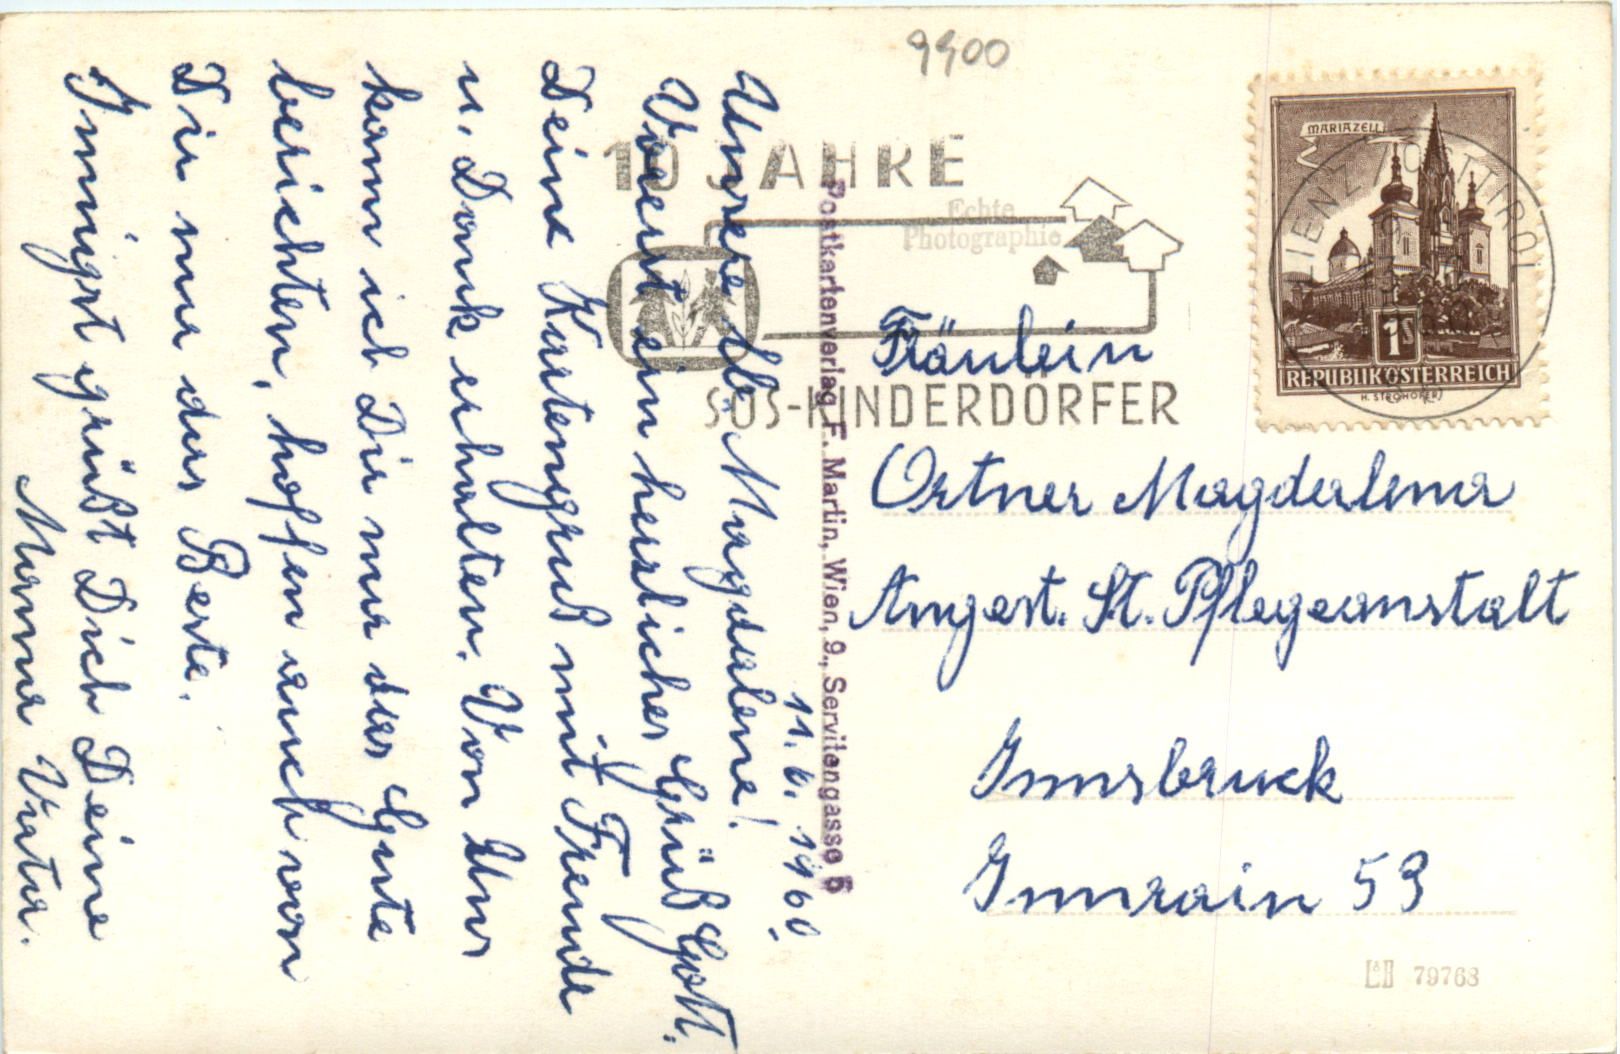 9900
11. 6. 1960.
Unsere lb. Magdalena!
Voerst ein herzlicher Grüß Gott.
Deine Kartengruß mit Freude
u. Dank erhalten. Von Uns
kann ich Dir nur das Gute
berichten, hoffen auch von
Dir nur das Beste.
Innigst grüßt Dich Deine
Mama Vater.
10 JAHRE
SOS-KINDERDÖRFER
Echte
Photographie
Postkartenverlag F. Martin, Wien, 9., Servitengasse 5
MARIAZELL
1S
REPUBLIK ÖSTERREICH
H. STROHOFER
LIENZ OSTTIROL
Fräulein
Ortner Magdalena
Angest. St. Pflegeanstalt
Innsbruck
Innrain 53
79768